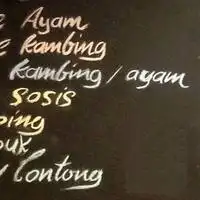 e Ayam
e kambing
kambing / ayam
sosis
ping
ouk
/ Lontong